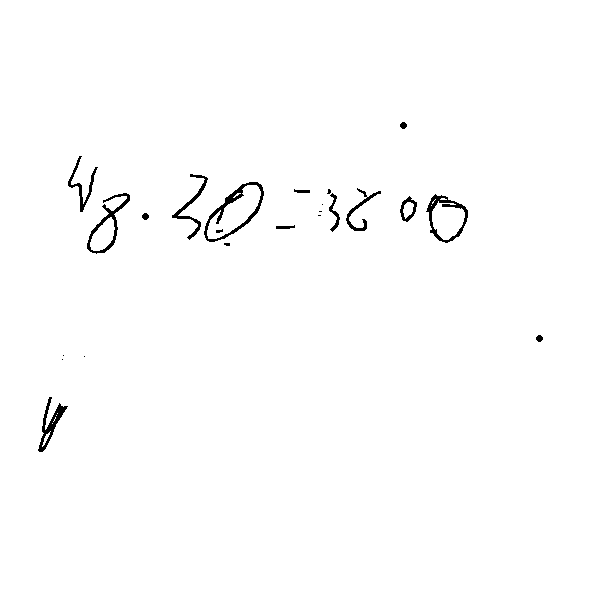 48 · 30 = 3600